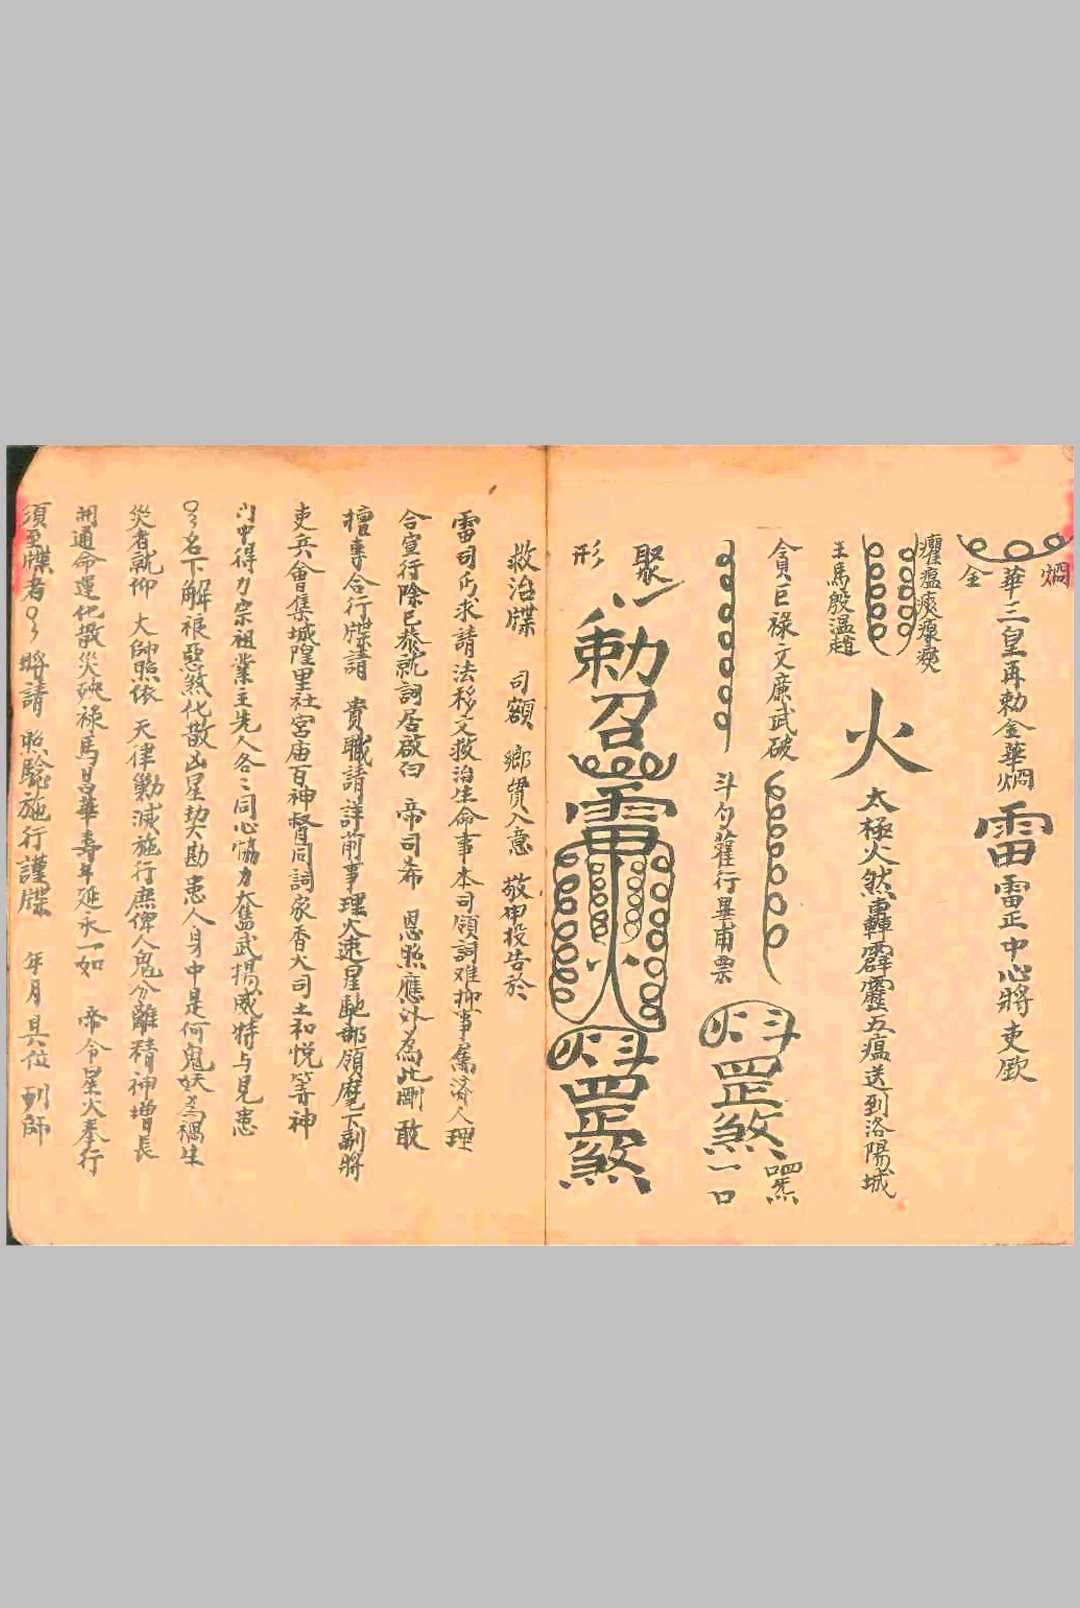 焗
金
華三皇再勅金華焗
雷
雷正中心將吏欽
王馬殷温趙
火
太極火然轟霹靂五瘟送到洛陽城
貪巨祿文廉武破
斗勺雚行畢甫票
斗火
罡煞
一口
聚
形
勅召
雷火
斗火
罡煞
救治牒 司額 鄉貫入意 敬申投告於
雷司丐求請法移文救治生命事本司領詞难抑事屬濟人理
合宣行除已恭就詞居啟白 帝司希 恩照應外為此剛敢
擅專合行牒請 貴職請詳前事理火速星馳部領麾下副將
吏兵會集城隍里社宮庙百神督同詞家香火司土和悅等神
门中得力宗祖業主先人各々同心協力奮武揚威特与見患
名下解禳惡煞化散凶星契勘患人身中是何鬼妖為禍生
災者就仰 大帥照依 天律勦滅施行庶俾人鬼分離精神增長
開通命運化散災殃祿馬昌華壽年延永一如 帝令星火奉行
須至牒者 將請 照驗施行謹牒 年月具位 列師